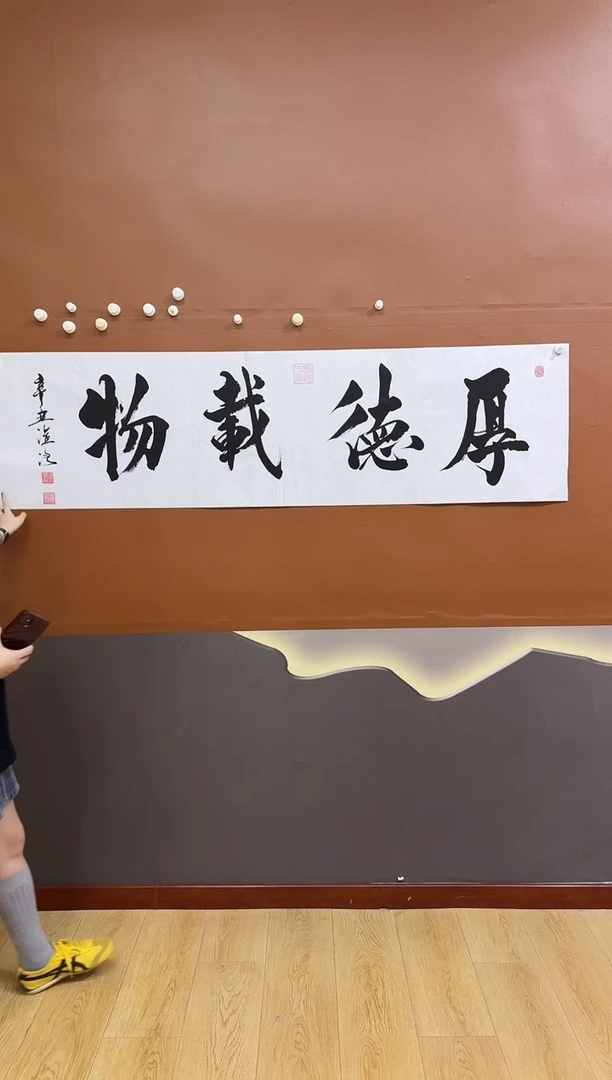 厚德載物
辛丑